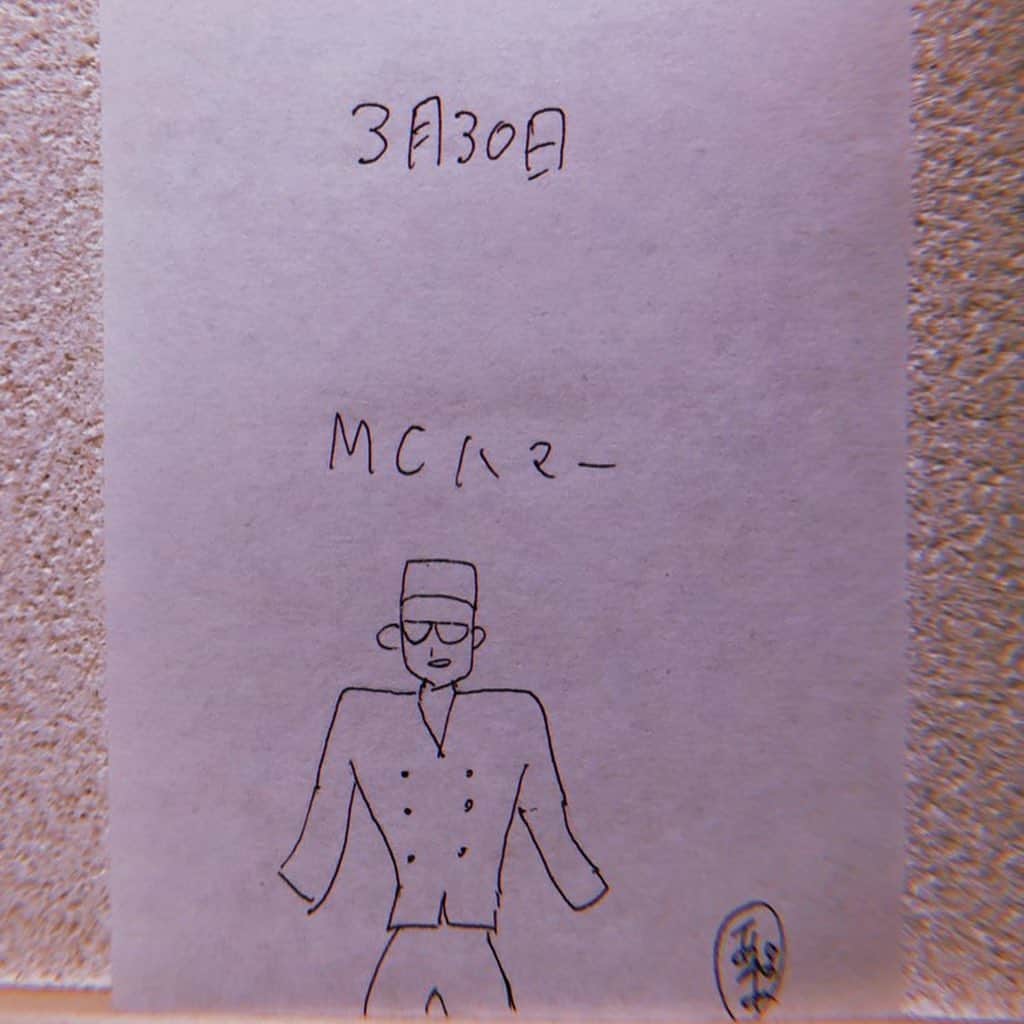 3月30日
MCハマー